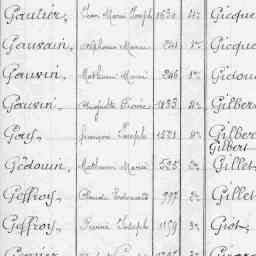 Gautier, Jean Marie Joseph 1630 4e Gicque
Gauvain, Alphonse Marie 241 1e Gicque
Gauvin, Mathurin Marie 246 1e Gidou
Gauvin, Auguste Pierre 1833 Gilber
Gars, François Joseph 1521 Gilber
Gilbert
Gédouin, Mathurin Marie 525 2e Gillet
Geffroy, Claude Ferdinand 997 2e Gillet
Geffroy, Pierre Joseph 1159 3e Giot,